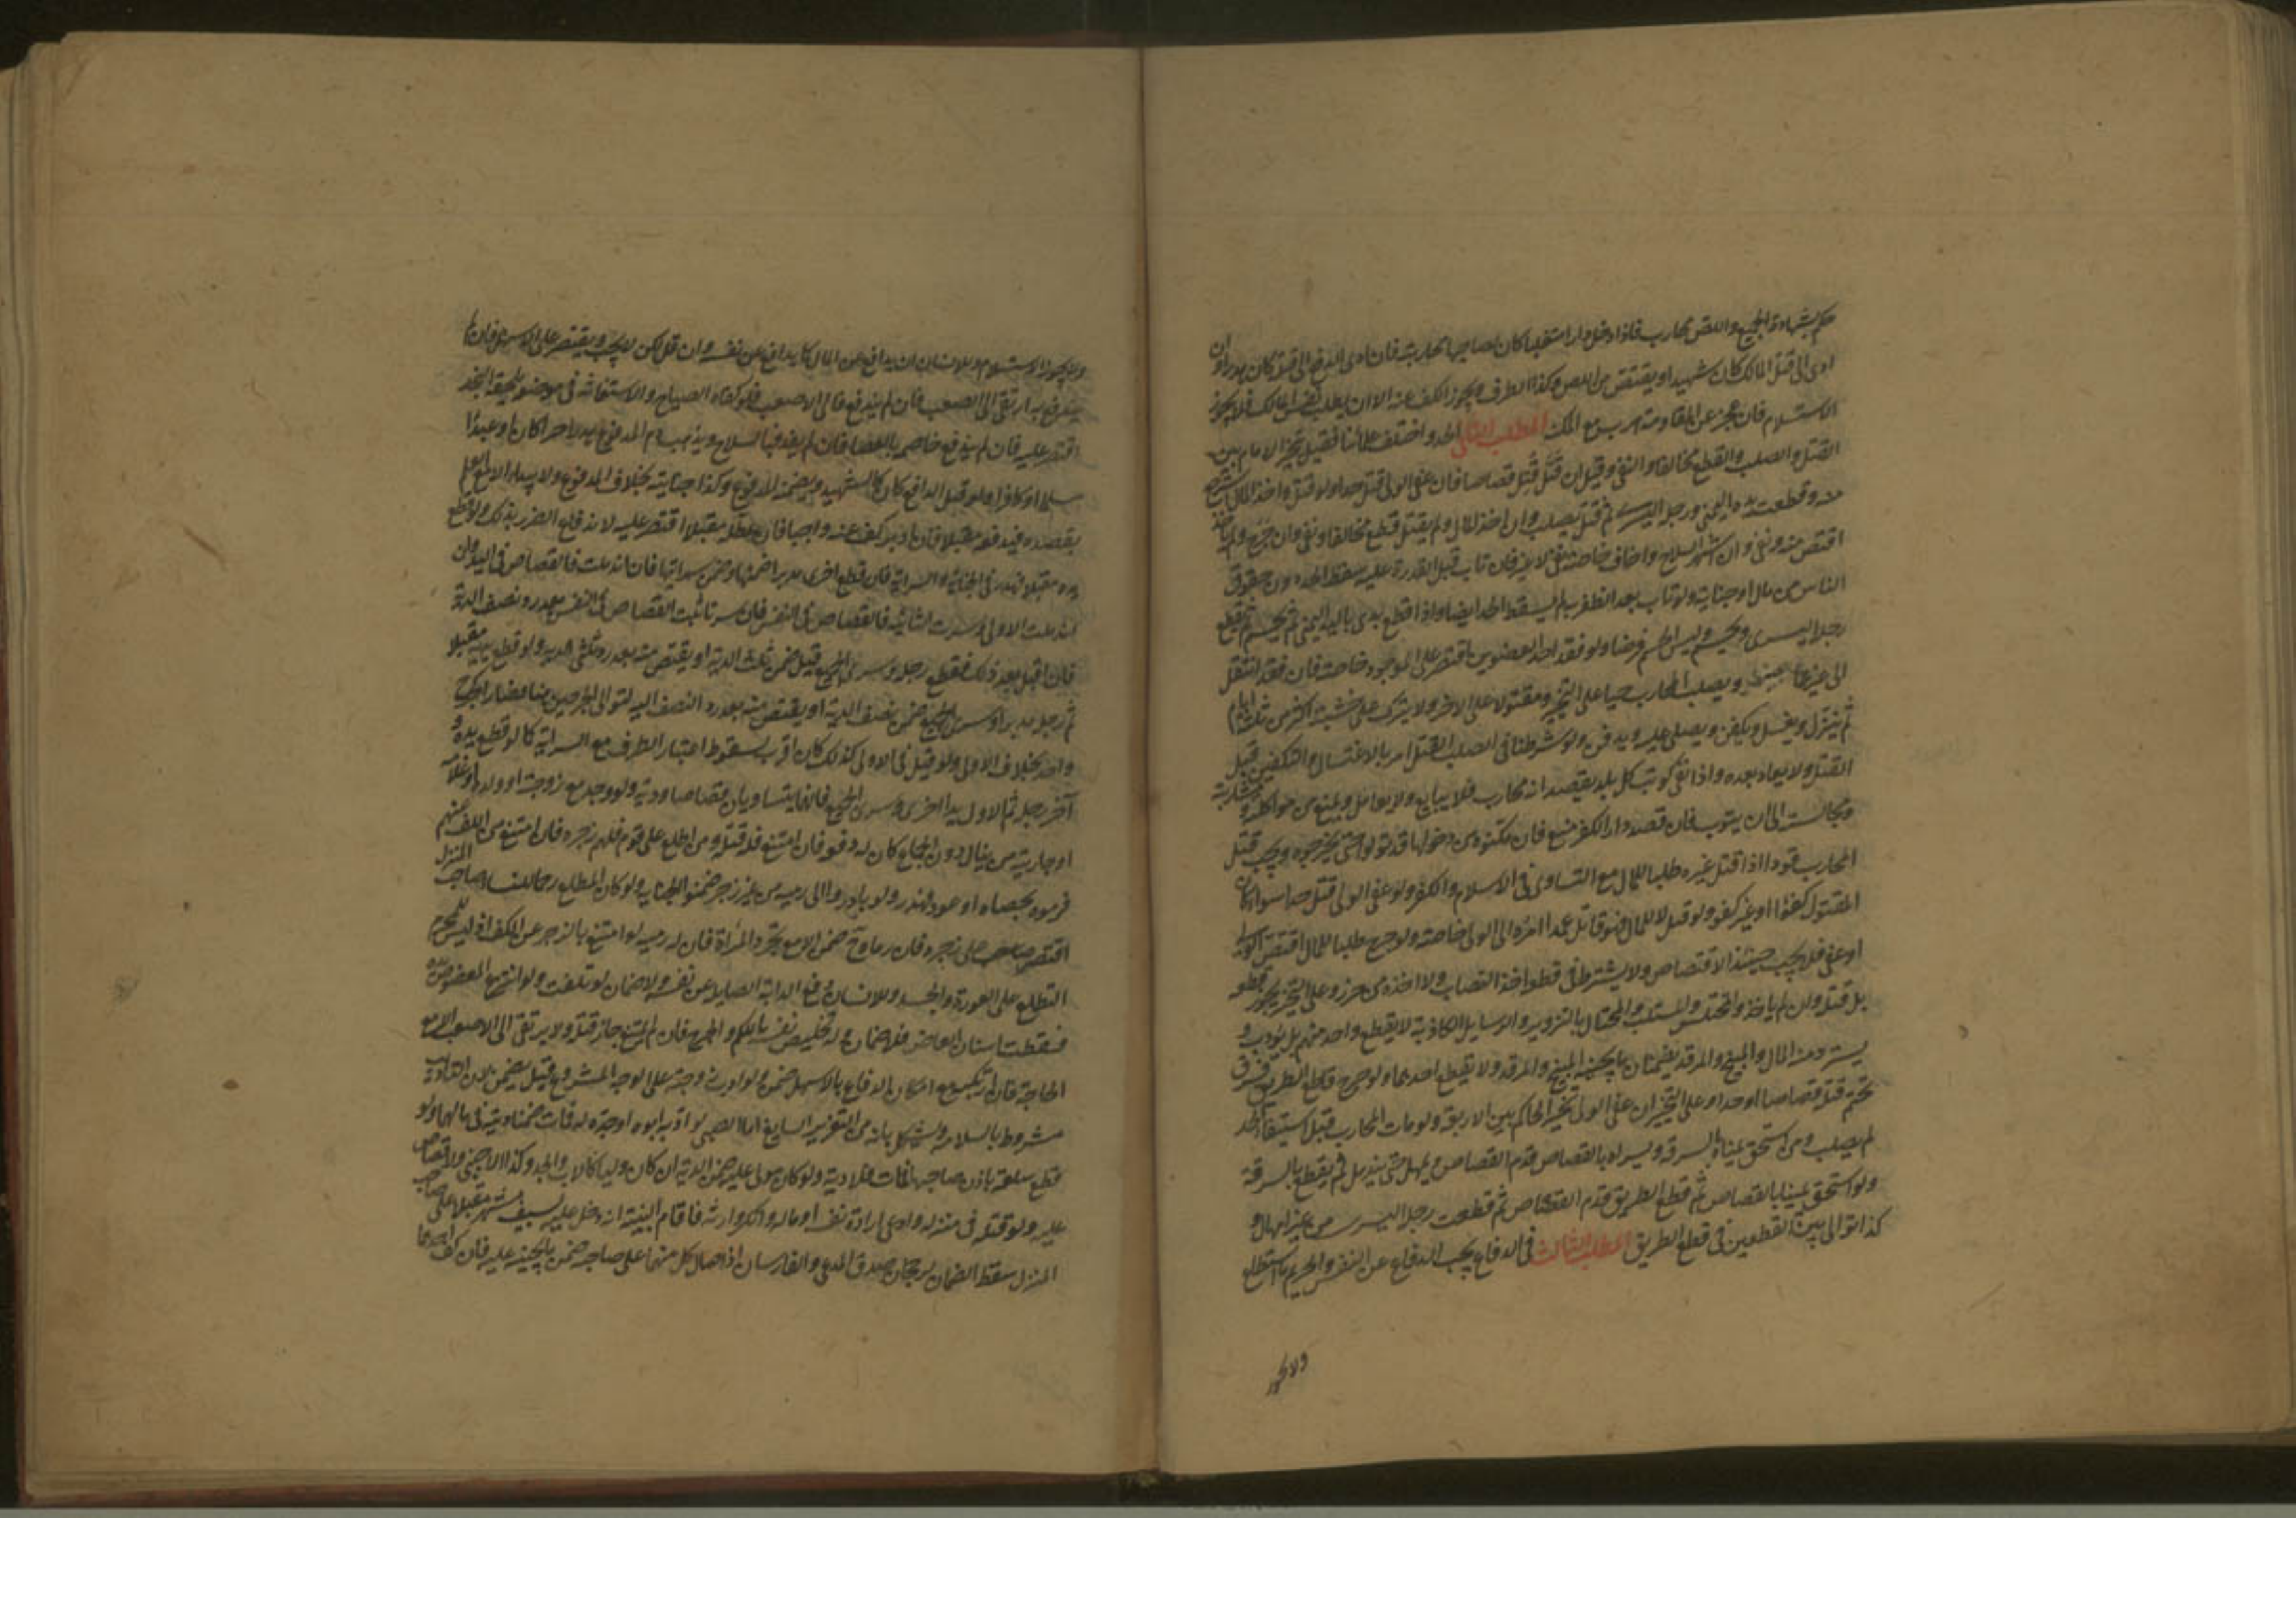 حكم بشهادة الجميع واللص محارب فاذا دخل دارا متغلبا كان لصاحبها محاربته فان ادى الدفع الى قتله كان هدرا وان
ادى الى قتل المالك كان شهيدا ويقتص من اللص وكذا الطرف ويجوز الكف عنه الا ان يطلب نفس المالك فلا يجوز
الاستسلام فان عجز عن المقاومة هرب مع المكنة المطلب الثاني الحد واختلف علمائنا فقيل تخير الامام بين
القتل والصلب والقطع مخالفا والنفى وقيل ان قتل قتل قصاصا فان عفى الولى قتل حدا ولو قتل واخذ المال استرجع
منه وقطعت يده اليمنى ورجله اليسرى ثم قتل وصلب وان اخذ المال ولم يقتل قطع مخالفا ونفى وان جرح ولم ياخذ
اقتص منه ونفى وان شهر السلاح واخاف خاصة نفى لا غير فان تاب قبل القدرة عليه سقط الحد دون حقوق
الناس من مال او جناية ولو تاب بعد الظفر به لم يسقط الحد ايضا واذا قطع بدى باليد اليمنى ثم يحسم ثم يقطع
رجله اليسرى ويحسم وليس الحسم فرضا ولو فقد احد العضوين اقتصر على الموجود خاصة فان فقد انتقل
الى غيرهما حينئذ ويصلب المحارب حيا على التخير ومقتولا على الاخر ولا يترك على خشبته اكثر من ثلثة ايام
ثم ينزل ويغسل ويكفن ويصلى عليه ويدفن ولو شرطنا فى الصلب القتل امر بالاغتسال والتكفين قبل
القتل ولا يعاد بعده واذا نفى كوتب كل بلد يقصده انه محارب فلا يبايع ولا يعامل ويمنع من مواكلته ومشاربته
ومجالسته الى ان يتوب فان قصد دار الكفر منع فان مكنوه من دخولها قوتلوا حتى يخرجوه ويجب قتل
المحارب قودا اذا قتل غيره طلبا للمال مع التساوى فى الاسلام والكفر ولو عفى الولى قتل حدا سواء كان
المقتول كفؤا او غير كفو ولو قتل لا للمال فهو قاتل عمد امره الى الولى خاصة ولو جرح طلبا للمال اقتص الولى
او عفى فلا يجب حينئذ الاقتصاص ولا يشترط فى قطعه اخذ النصاب ولا اخذه من حرز وعلى التخير يجوز قطعه
بل قتله وان لم ياخذ والمختلس والمستلب والمحتال بالتزوير والرسايل الكاذبة لا يقطع واحد منهم بل يؤدب و
يسترد منه المال والمبنج والمرقد يضمنان ما يجنيه البنج والمرقد ولا يقطع احدهما ولو جرح قاطع الطريق فسرى
تحتم قتله قصاصا او حدا وعلى التخير ان عفى الولى تخير الحاكم بين الاربعة ولو مات المحارب قبل استيفاء الحد
لم يصلب ومن استحق يمناه بالسرقة ويسراه بالقصاص قدم القصاص ويمهل حتى يندمل ثم يقطع بالسرقة
ولو استحق يمينا بالقصاص ثم قطع الطريق قدم القصاص ثم قطعت رجله اليسرى من غير امهال و
كذا توالى بين القطعين فى قطع الطريق المطلب الثالث فى الدفاع يجب الدفاع عن النفس والحريم ما استطاع
ولا يجوز
ولا يجوز الاستسلام وللانسان ان يدافع عن المال كما يدافع عن نفسه وان قل لكن لا يجب ويقتصر على الاسهل فان لم
يندفع به ارتقى الى الصعب فان لم يندفع فالى الاصعب فلو كفاه الصياح والاستغاثة فى موضع يلحقه المنجد
اقتصر عليه فان لم يندفع خاصمه بالعصا فان لم يفد فبالسلاح ويذهب دم المدفوع هدرا حرا كان او عبدا
مسلما او كافرا ولو قتل الدافع كان كالشهيد ويضمنه المدفوع وكذا جنايته بخلاف المدفوع ولا يبدا الا مع العلم
بقصده فيدفعه مقبلا فان ادبر كف عنه واجبا فان عطله مقبلا اقتصر عليه لاندفاع الضرر بذلك ولو قطع
يده مقبلا فهدر فى الجناية والسراية فان قطع اخرى مدبرا ضمنها وضمن سرايتها فان اندملت فالقصاص فى اليد وان
اندملت الاولى وسرت الثانية فالقصاص فى النفس فان سرتا ثبت القصاص فى النفس بعد رد نصف الدية
فان اقبل بعد ذلك فقطع رجله وسرى الجميع قيل ضمن ثلث الدية او يقتص منه بعد رد ثلثى الدية ولو قطع يده مقبلا
ثم رجله مدبرا وسرى الجميع ضمن نصف الدية او يقتص منه بعد رد النصف اليه لتوالى الجرحين هنا فصارا كجرح
واحد بخلاف الاولى ولو قيل فى الاولى كذلك كان اقرب لسقوط اعتبار الطرف مع السراية كما لو قطع يده و
آخر رجله ثم الاول يدا اخرى وسرى الجميع فانهما يتساويان قصاصا ودية ولو وجد مع زوجته او ولده او غلامه
او جاريته من ينال دون الجماع كان له دفعه فان امتنع فله قتله ومن اطلع على قوم فلهم زجره فان امتنع من الكف عنهم
فرموه بحصاه او عود فهدر ولو بادروا الى رميه من غير زجر ضمنوا الجناية ولو كان المطلع رحما لنساء صاحب المنزل
اقتصر صاحبه على زجره فان رماه ح ضمن الا مع تجرد المراة فان له رميه لو امتنع بالزجر عن الكف اذ ليس للمحرم
التطلع على العورة والجسد وللانسان دفع الدابة الصايلة عن نفسه ولا ضمان لو تلفت ولو انتزع المعضوض يده
فسقطت اسنان العاض فلا ضمان وله تخليص نفسه باللكم والجرح فان لم يمتنع جاز قتله ولا يرتقى الى الاصعب الا مع
الحاجة فان ارتكبه مع امكان الدفاع بالاسهل ضمن ولو ادب زوجته على الوجه المشروع قيل يضمن لان التاديب
مشروط بالسلامة ويشكل بانه من التعزير السايغ اما الصبى لو ادبه ابوه او جده له فمات ضمنا ديته فى مالهما ولو
قطع سلعة باذن صاحبها فمات فلا دية ولو كان مولى عليه ضمن الدية ان كان وليا كالاب والجد وكذا الاجنبى ولا قصاص
عليه ولو قتله فى منزله وادعى ارادة نفسه او ماله وانكر وارثه فاقام البينة انه دخل عليه بسيف مشهر مقبلا على صاحب
المنزل سقط الضمان لرجحان صدق المدعى والفارسان اذا صال كل منهما على صاحبه ضمن ما يجنيه عليه فان كف احدهما